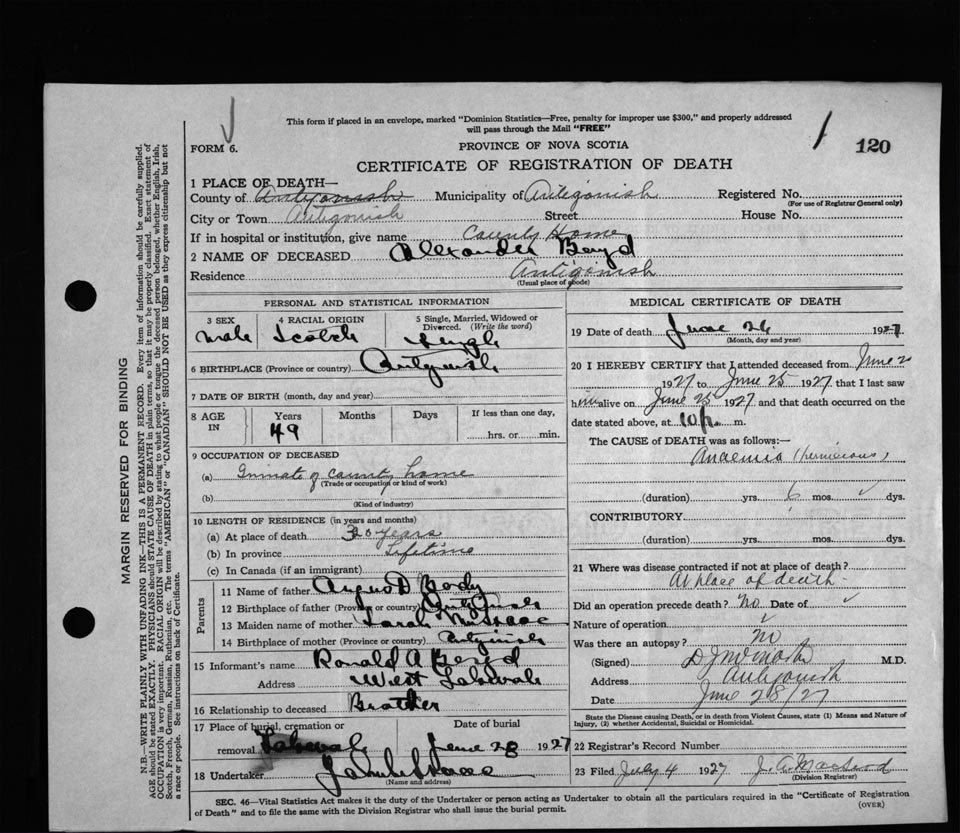 This form if placed in an envelope, marked "Dominion Statistics—Free, penalty for improper use $300," and properly addressed
will pass through the Mail "FREE"
FORM 6.
PROVINCE OF NOVA SCOTIA
120
CERTIFICATE OF REGISTRATION OF DEATH
1 PLACE OF DEATH—
County of Antigonish Municipality of Antigonish Registered No.
(For use of Registrar General only)
City or Town Antigonish Street House No.
If in hospital or institution, give name County Home
2 NAME OF DECEASED Alexander Boyd
Residence Antigonish
(Usual place of abode)
PERSONAL AND STATISTICAL INFORMATION
3 SEX 4 RACIAL ORIGIN 5 Single, Married, Widowed or
Divorced. (Write the word)
Male Scotch Single
6 BIRTHPLACE (Province or country) Antigonish
7 DATE OF BIRTH (month, day and year)
8 AGE IN Years Months Days If less than one day,
49 hrs. or min.
9 OCCUPATION OF DECEASED
(a) Inmate of county home
(Trade or occupation or kind of work)
(b)
(Kind of industry)
10 LENGTH OF RESIDENCE (in years and months)
(a) At place of death years
(b) In province Lifetime
(c) In Canada (if an immigrant)
Parents
11 Name of father Angus D
12 Birthplace of father (Province or country) Antigonish
13 Maiden name of mother Sarah McIsaac
14 Birthplace of mother (Province or country) Antigonish
15 Informant's name Ronald A Boyd
Address West Lakevale
16 Relationship to deceased Brother
17 Place of burial, cremation or Date of burial
removal Lakevale June 28 1927
18 Undertaker
(Name and address)
MEDICAL CERTIFICATE OF DEATH
19 Date of death June 26 1927
(Month, day and year)
20 I HEREBY CERTIFY that I attended deceased from June
1927 to June 25 1927 that I last saw
him alive on June 25 1927 and that death occurred on the
date stated above, at 10 p. m.
The CAUSE of DEATH was as follows:—
Anaemia (pernicious)
(duration) yrs. 6 mos. dys.
CONTRIBUTORY
(duration) yrs. mos. dys.
21 Where was disease contracted if not at place of death?
At place of death
Did an operation precede death? No Date of
Nature of operation
Was there an autopsy? No
(Signed) M.D.
Address Antigonish
Date June 28/27
State the Disease causing Death, or in death from Violent Causes, state (1) Means and Nature of
Injury, (2) whether Accidental, Suicidal or Homicidal.
22 Registrar's Record Number
23 Filed July 4 1927 J. A. MacLeod
(Division Registrar)
SEC. 46—Vital Statistics Act makes it the duty of the Undertaker or person acting as Undertaker to obtain all the particulars required in the "Certificate of Registration
of Death" and to file the same with the Division Registrar who shall issue the burial permit.
(OVER)
MARGIN RESERVED FOR BINDING
N.B.—WRITE PLAINLY WITH UNFADING INK—THIS IS A PERMANENT RECORD. Every item of information should be carefully supplied.
AGE should be stated EXACTLY. PHYSICIANS should STATE CAUSE OF DEATH in plain terms, so that it may be properly classified. Exact statement of
OCCUPATION is very important. RACIAL ORIGIN will be described by stating to what people or tongue the deceased person belonged, whether English, Irish,
Scotch, French, German, Russian, Ruthenian, etc. The terms "AMERICAN" or "CANADIAN" SHOULD NOT BE USED as they express citizenship but not
a race or people. See instructions on back of Certificate.